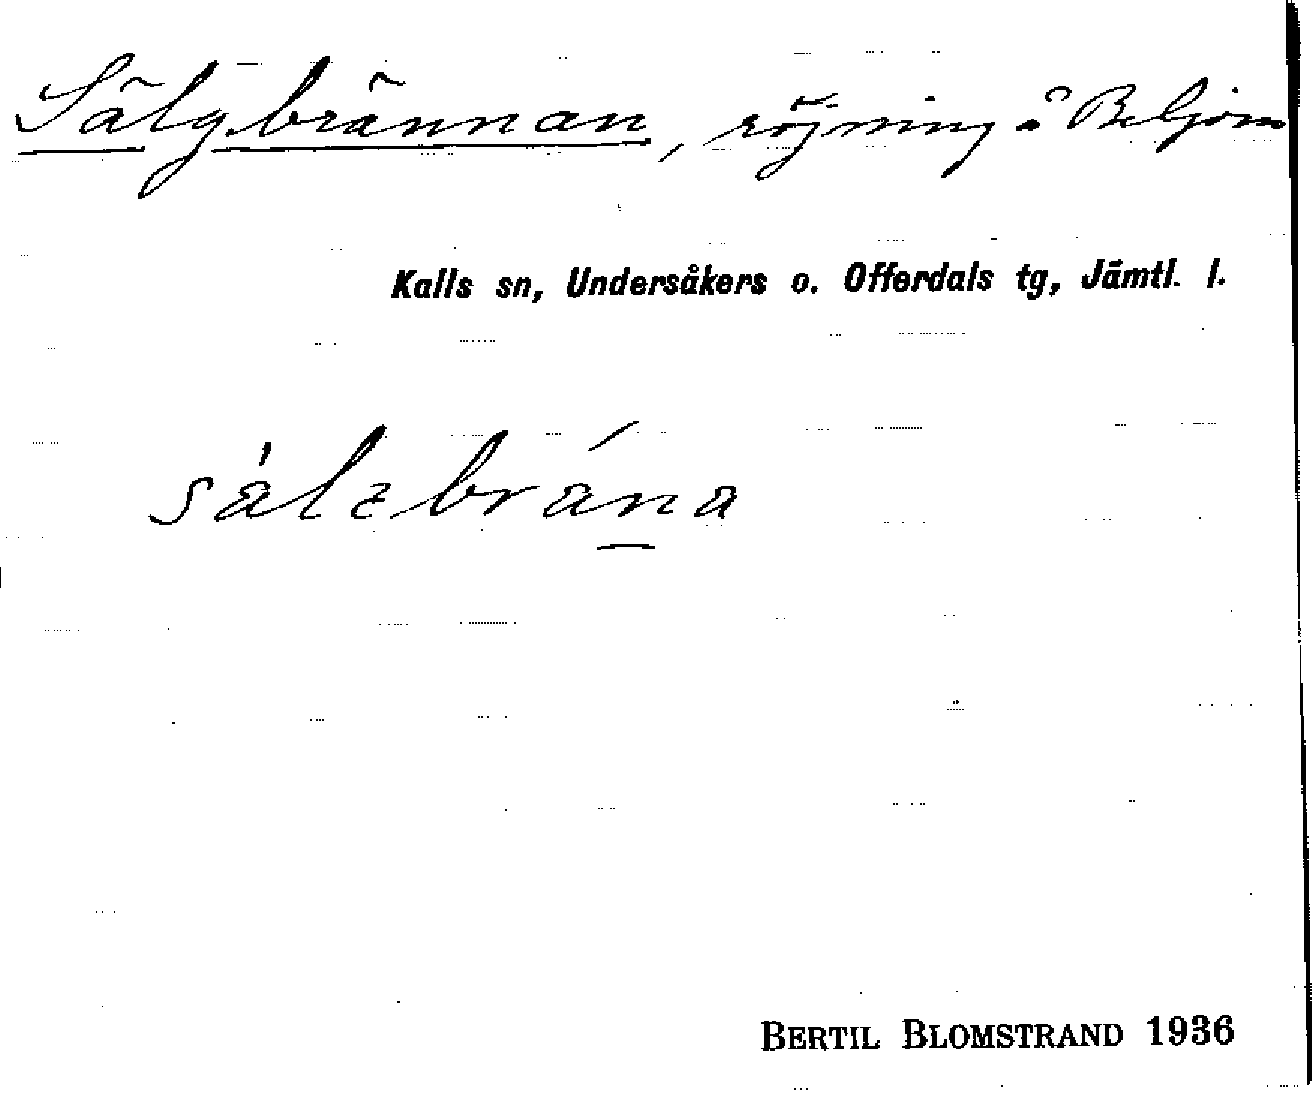 Sälgbrännan, röjning å Beljom
Kalls sn, Undersåkers o. Offerdals tg, Jämtl. l.
sálzbrána
BERTIL BLOMSTRAND 1936